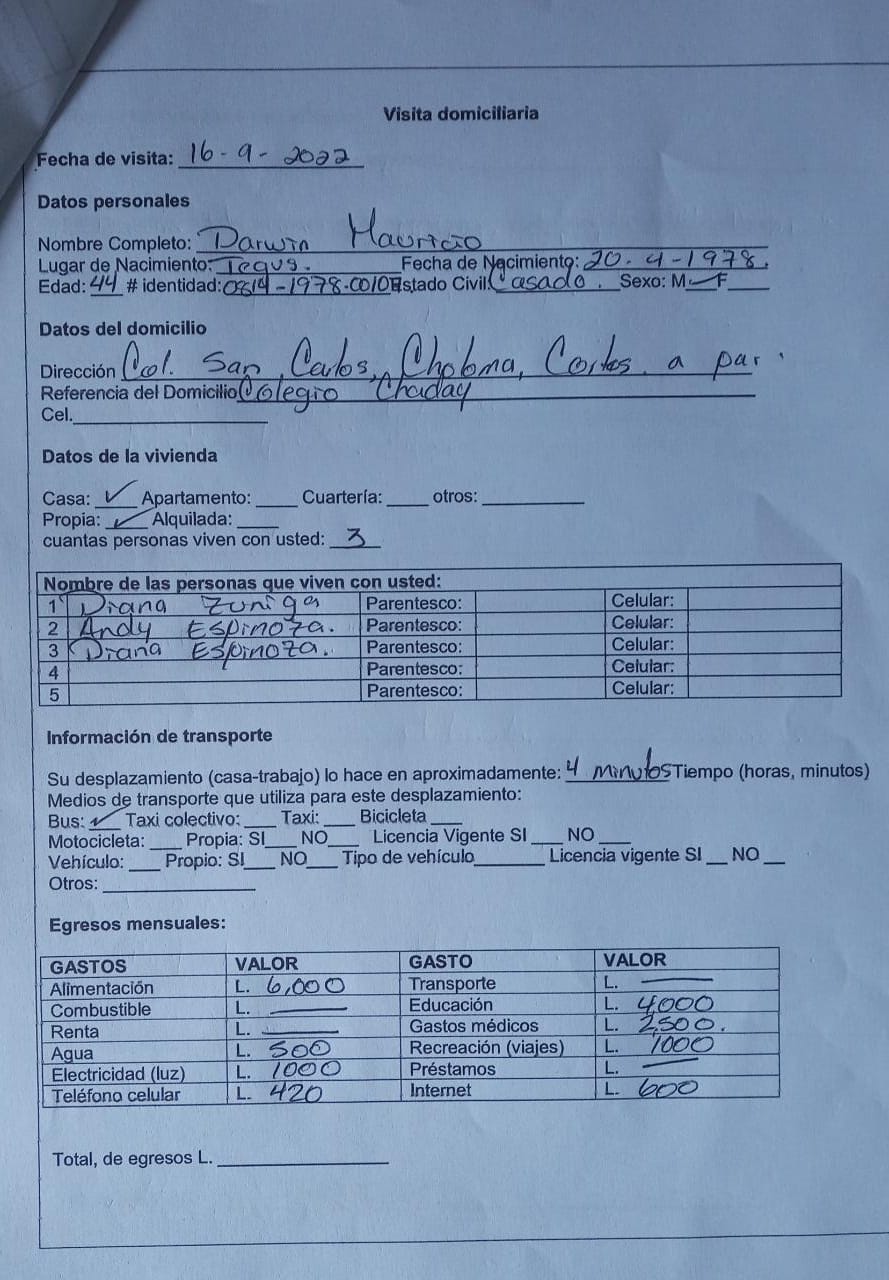 Visita domiciliaria
Fecha de visita: 16-9-2022
Datos personales
Nombre Completo: Darwin Mauricio
Lugar de Nacimiento: Tegus. Fecha de Nacimiento: 20.4-1978.
Edad: 44 # identidad: 0814-1978-0010 Estado Civil: Casado. Sexo: M ✓ F____
Datos del domicilio
Dirección Col. San Carlos, Choloma, Cortes. a par
Referencia del Domicilio Colegio Chaday
Cel.____
Datos de la vivienda
Casa: ✓ Apartamento: ____ Cuartería: ____ otros: ____
Propia: ✓ Alquilada: ____
cuantas personas viven con usted: 3
Nombre de las personas que viven con usted:
1 Diana Zuniga Parentesco: Celular:
2 Andy Espinoza. Parentesco: Celular:
3 Diana Espinoza. Parentesco: Celular:
4 Parentesco: Celular:
5 Parentesco: Celular:
Información de transporte
Su desplazamiento (casa-trabajo) lo hace en aproximadamente: 4 minutos Tiempo (horas, minutos)
Medios de transporte que utiliza para este desplazamiento:
Bus: ✓ Taxi colectivo: ____ Taxi: ____ Bicicleta ____
Motocicleta: ____ Propia: SI____ NO____ Licencia Vigente SI ____ NO ____
Vehículo: ____ Propio: SI____ NO____ Tipo de vehículo____ Licencia vigente SI __ NO __
Otros: ____
Egresos mensuales:
GASTOS VALOR GASTO VALOR
Alimentación L. 6,000 Transporte L. —
Combustible L. — Educación L. 4,000
Renta L. — Gastos médicos L. 2,500.
Agua L. 500 Recreación (viajes) L. 1000
Electricidad (luz) L. 1000 Préstamos L. —
Teléfono celular L. 420 Internet L. 600
Total, de egresos L. ____